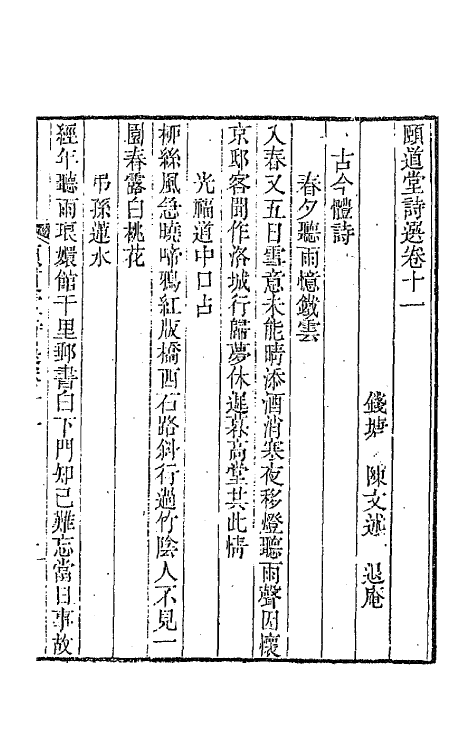 頤道堂詩選卷十一
錢塘　陳文述　退庵
古今體詩
春夕聽雨憶鐵雲
入春又五日雪意未能晴添酒消寒夜移燈聽雨聲因懷
京邸客聞作洛城行歸夢休遲暮高堂共此情
光福道中口占
柳絲風急曉啼鴉紅版橋西石路斜行過竹陰人不見一
園春露白桃花
弔孫蓮水
經年聽雨琅嬛館千里郵書白下門知己難忘當日事故